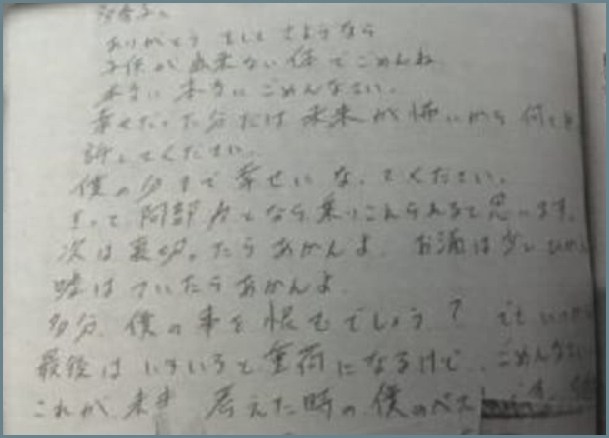 ありがとう そして さようなら
子供が出来ない体でごめんね
本当に 本当に ごめんなさい。
幸せだった分だけ 未来が怖いから 何も
許してください。
僕の分まで幸せになってください。
きっと 阿部 となら乗りこえられると思います。
次は裏切ったらあかんよ お酒は少しひか
嘘はついたらあかんよ
多分、僕の事を恨むでしょう? でも いつか
最後は いろいろと 重荷になるけど、ごめんなさい
これが、未来 考えた時の 僕のベス